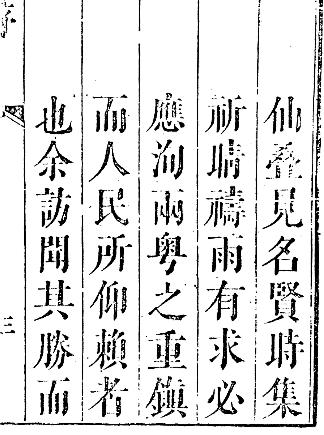 仙叠見名賢時集
祈晴禱雨有求必
應洵兩粤之重鎮
而人民所仰賴者
也余訪聞其勝而
序
三